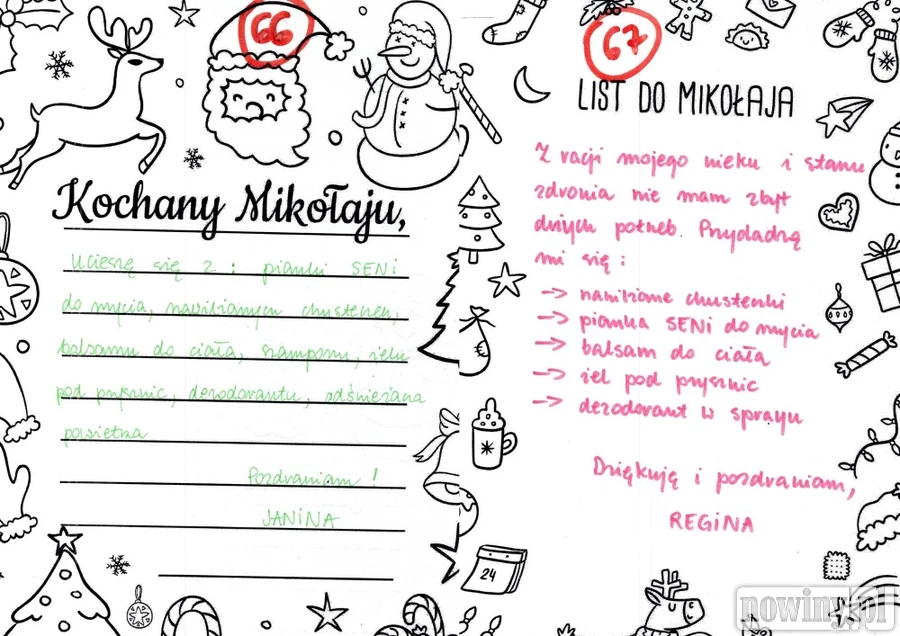 66
Kochany Mikołaju,
Ucieszę się z: pianki SENI
do mycia, nawilżanych chusteczek,
balsamu do ciała, szamponu, żelu
pod prysznic, dezodorantu, odświeżacza
powietrza
Pozdrawiam!
JANINA
67
LIST DO MIKOŁAJA
Z racji mojego wieku i stanu
zdrowia nie mam zbyt
dużych potrzeb. Przydadzą
mi się:
→ nawilżane chusteczki
→ pianka SENI do mycia
→ balsam do ciała
→ żel pod prysznic
→ dezodorant w sprayu
Dziękuję i pozdrawiam,
REGINA
24
nowiny.pl